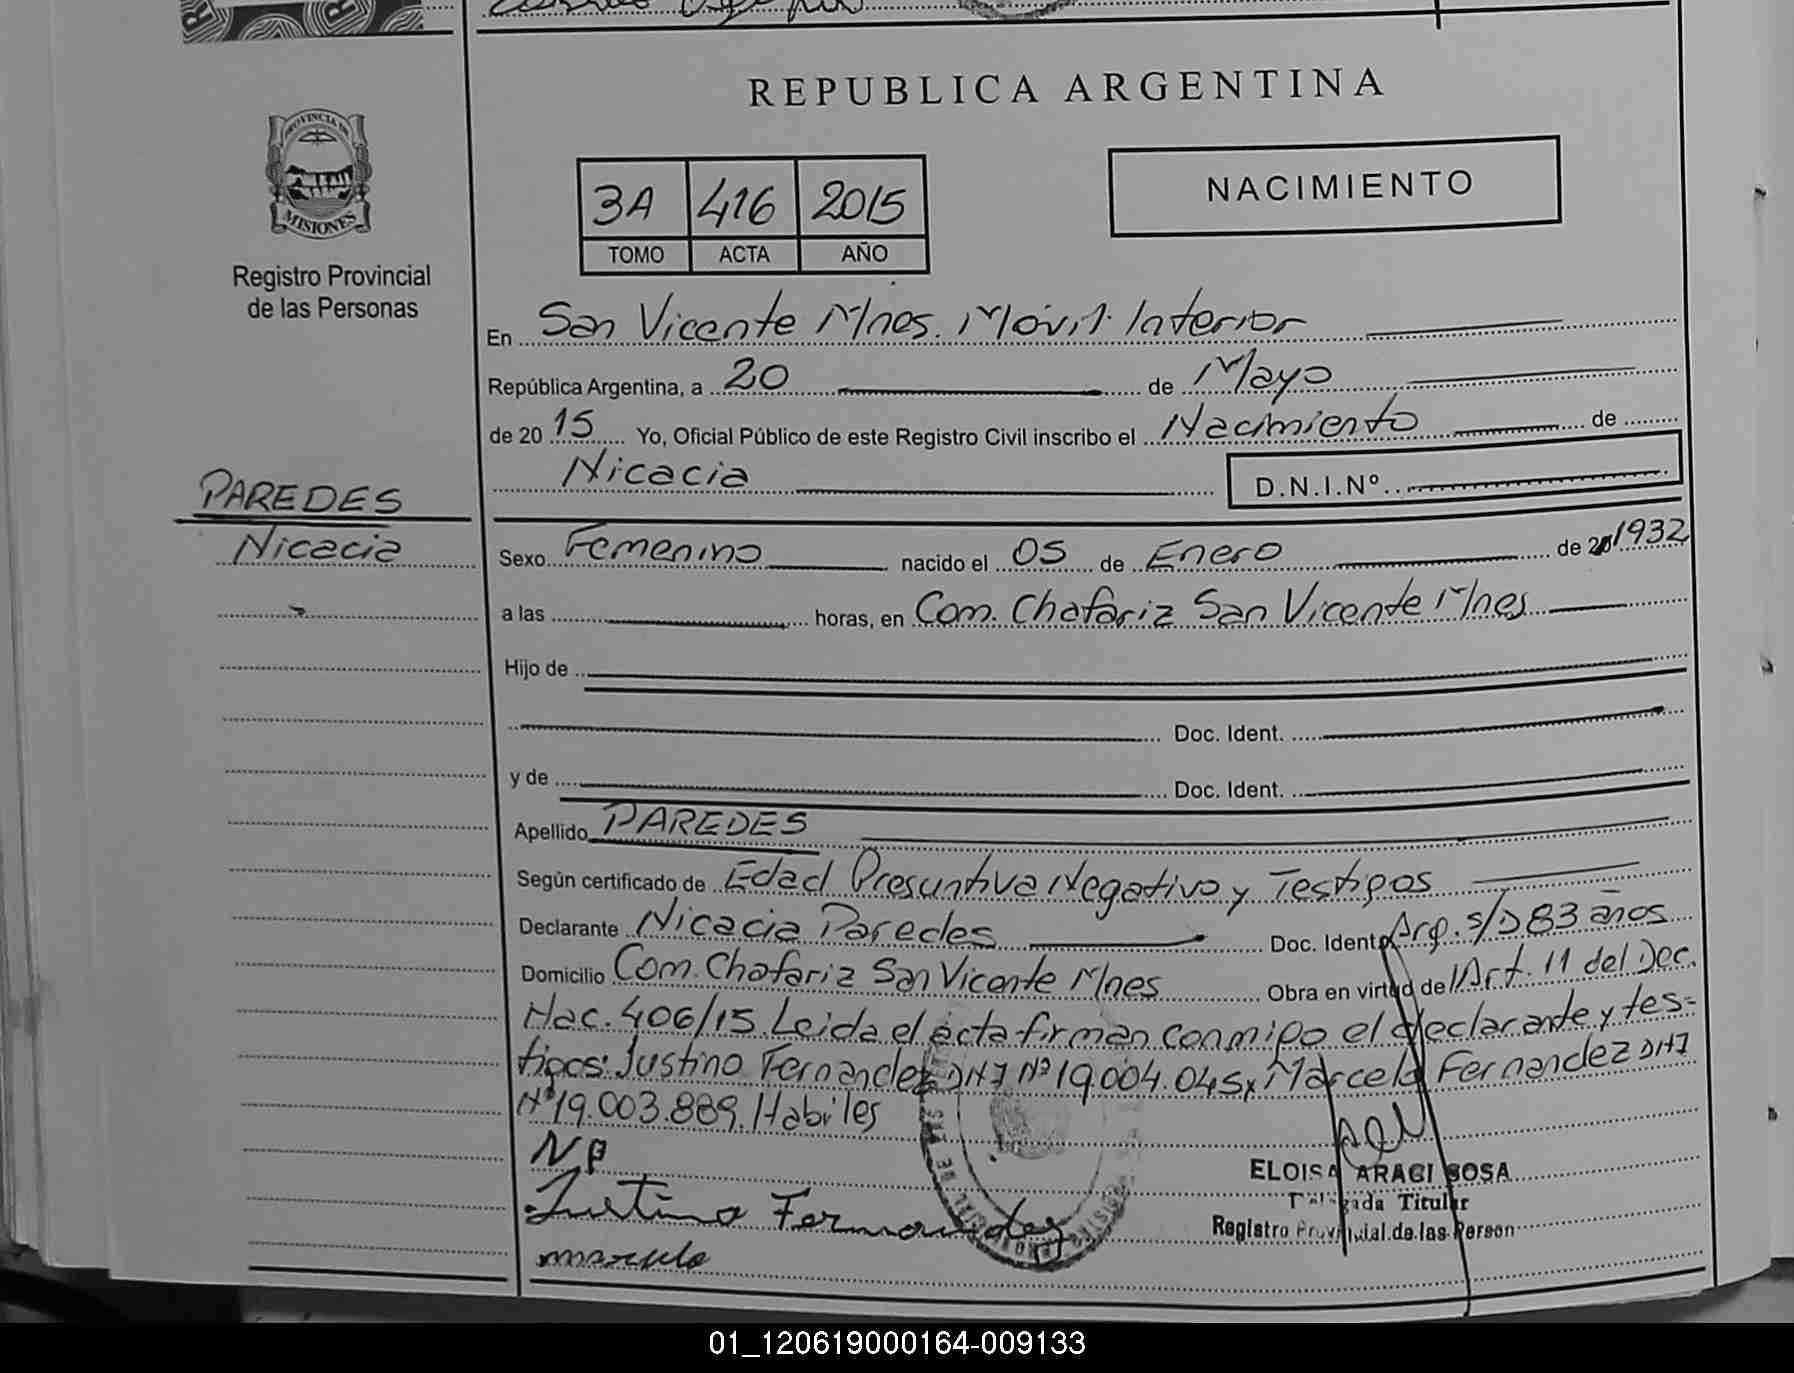 REPUBLICA ARGENTINA
PROVINCIA DE
MISIONES
Registro Provincial
de las Personas
3A 416 2015
TOMO ACTA AÑO
NACIMIENTO
En San Vicente Mnes. Móvil Interior
República Argentina, a 20 de Mayo
de 20 15 Yo, Oficial Público de este Registro Civil inscribo el Nacimiento de
Nicacia D.N.I.Nº
PAREDES
Nicacia
Sexo Femenino nacido el 05 de Enero de 1932
a las horas, en Com. Chafariz San Vicente Mnes
Hijo de
Doc. Ident.
y de Doc. Ident.
Apellido PAREDES
Según certificado de Edad Presuntiva Negativo y Testigos
Declarante Nicacia Paredes Doc. Ident Arg. s/D 83 años
Domicilio Com. Chafariz San Vicente Mnes Obra en virtud de Art. 11 del Dec.
Nac. 406/15. Leida el acta firman conmigo el declarante y tes=
tigos: Justino Fernandez DNI Nº 19.004.045 y Marcelo Fernandez DNI
Nº 19.003.889. Habiles
Np
Justino Fernandez
marcelo
ELOISA ARACI SOSA
Delegada Titular
Registro Provincial de las Person
01_120619000164-009133